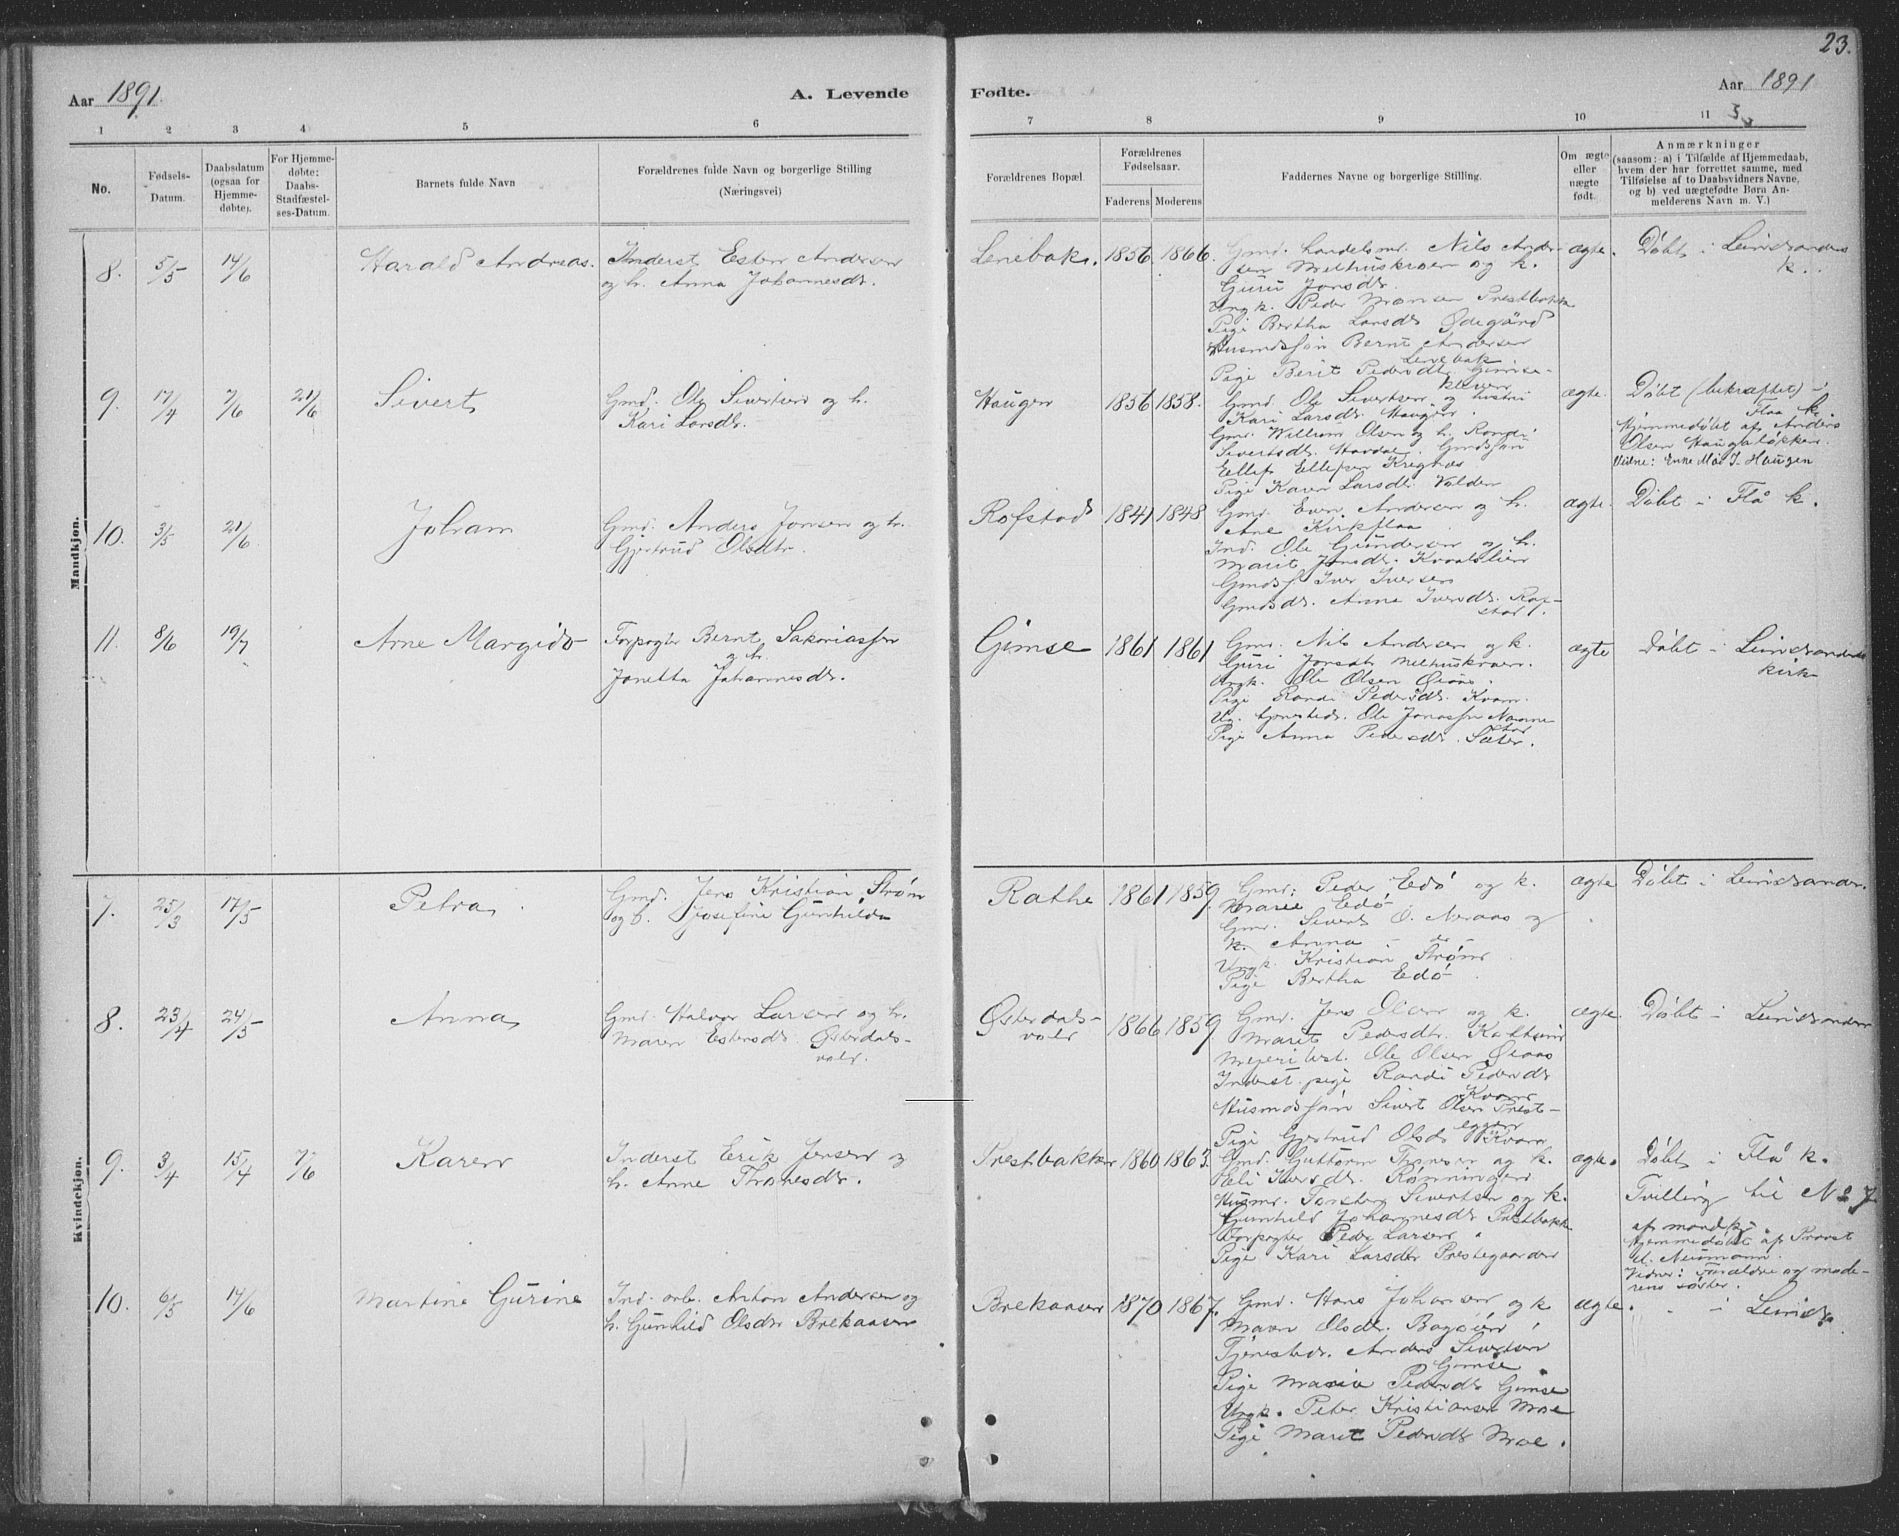 23.
Aar 1891.
A. Levende
Fødte.
Aar 1891
1 2 3 4 5 6 7 8 9 10 11
No.
Fødsels-
Datum.
Daabsdatum
(ogsaa for
Hjemme-
døbte).
For Hjemme-
døbte:
Daabs-
Stadfæstel-
ses-Datum.
Barnets fulde Navn
Forældrenes fulde Navn og borgerlige Stilling
(Næringsvei)
Forældrenes Bopæl.
Forældrenes
Fødselsaar.
Faderens Moderens
Faddernes Navne og borgerlige Stilling.
Om ægte
eller
uægte
født.
Anmærkninger
(saasom: a) i Tilfælde af Hjemmedaab,
hvem der har forrettet samme, med
Tilføielse af to Daabsvidners Navne,
og b) ved uægtefødte Børn An-
melderens Navn m. V.)
Mandkjøn.
8. 5/5 14/6
Harald Andreas.
Inderst Esten Andersen
og h. Anna Johannesdr.
Lenebak. 1856 1866.
Gmd. handelsmd. Nils Ander-
sen Melhuskroen og k.
Guru Jonsdr.
Ungk. Peder Monsen Prestbakk
Pige Bertha Larsdr Ødegård
Husmdssøn Bernt Andersen
Lenebak
Pige Berit Pedersdr. Gimse-
kleven
ægte.
Døbt i Leinstrandens
k.
9. 17/4 7/6 21/6
Sivert
Gmd. Ole Sivertsen og h.
Kari Larsdr.
Haugen 1856 1858.
Gmd. Ole Sivertsen og hustru
Kari Larsdr. Haugen.
Gmd. Willram Olsen og h. Randi
Sivertsdr. Havdal. Gmdssøn
Ellef Ellefsen Kregnæs
Pige Karen Larsdr. Volden
ægte.
Døbt (bekræftet) i
Flaa k.
Hjemmedøbt af Anders
Olsen Haugaløkken.
Vidne: Enne Mo J. Haugen
10. 3/5 21/6
Johan
Gmd. Anders Jonsen og h.
Gjertrud Olsdtr.
Rofstad 1841 1848
Gmd. Even Andersen og h.
Ane Kirkflaa
Ind. Ole Gundersen og h.
Marit Jonsdr. Kvaalslien
Gmdss Iver Iversen
Gmdsdr. Anna Iversdr. Rof-
stad.
ægte.
Døbt i Flå k.
11. 8/6 19/7
Arne Margido
Forpagter Bernt Sakariassen
og h.
Jonetta Johannesdr.
Gimse 1861 1861
Gmd. Nils Andersen og k.
Guri Jonsdr Melhuskroen.
Ungk. Ole Olsen Øiaas.
Pige Randi Pedersdr. Kvam.
Ug. tjenestedr. Ole Jonassen Navne
stad
Pige Anna Pedersdr. Sæter.
ægte
Døbt i Leinstrandens
kirk
Kvindekjøn.
7. 25/3 17/5
Petra
Gmd. Jens Kristian Strøm
og h. Josefine Gunhilda
Rathe 1861 1859.
Gmd. Peder Edø og k.
Marie Edø
Gmd. Sivert O. Neraas og
k. Anna — do
Ungk. Kristian Strøm
Pige Bertha Edø
ægte
Døbt i Leinstranden.
8. 23/4 24/5
Anna
Gmd. Halvor Larsen og h.
Maren Estensdr. Østerdals-
volr.
Østerdals-
volr 1866 1859.
Gmd. Jens Olsen og k.
Marit Pedersdr. Kaltsun
Meieribest. Ole Olsen Øiaas
Inderst. pige Randi Pedersdr
Kvam
Husmdssøn Sivert Olsen Prest-
eggen
Pige Gjertrud Olsdr Kvam
ægte.
Døbt i Leinstranden
9. 3/4 15/4 7/6
Karen
Inderst Erik Jensen og
h. Anne Thoresdr.
Prestbakken 1860 1863.
Gmd. Guttorm Thoresen og k.
Eli Iversdr. Rønningen
Husmd. Torsten Sivertsen og k.
Gunhild Johannesdr Prestbakk
Forpagter Peder Larsen "
Pige Kari Larsdr Prestegaarden
ægte.
Døbt i Flå k.
Tvilling til No 7
af mandkj.
Hjemmedøbt af Provst
Neumann.
Vidner: Forældre og mode-
rens søster.
10. 6/5 14/6
Martine Gurine
Ind. arb. Anton Andersen og
h. Gunhild Olsdr Brekaasen
Brekaasen 1870 1867.
Gmd. Hans Johansen og k
Maren Olsdr. Bagøien
Tjenestedr. Anders Sivertsen
Gimse
Pige Marie Pedersdr Gimse
Ungk. Peter Kristiansen Moe
Pige Marit Pedersdr Moe.
ægte.
" i Leinstr.